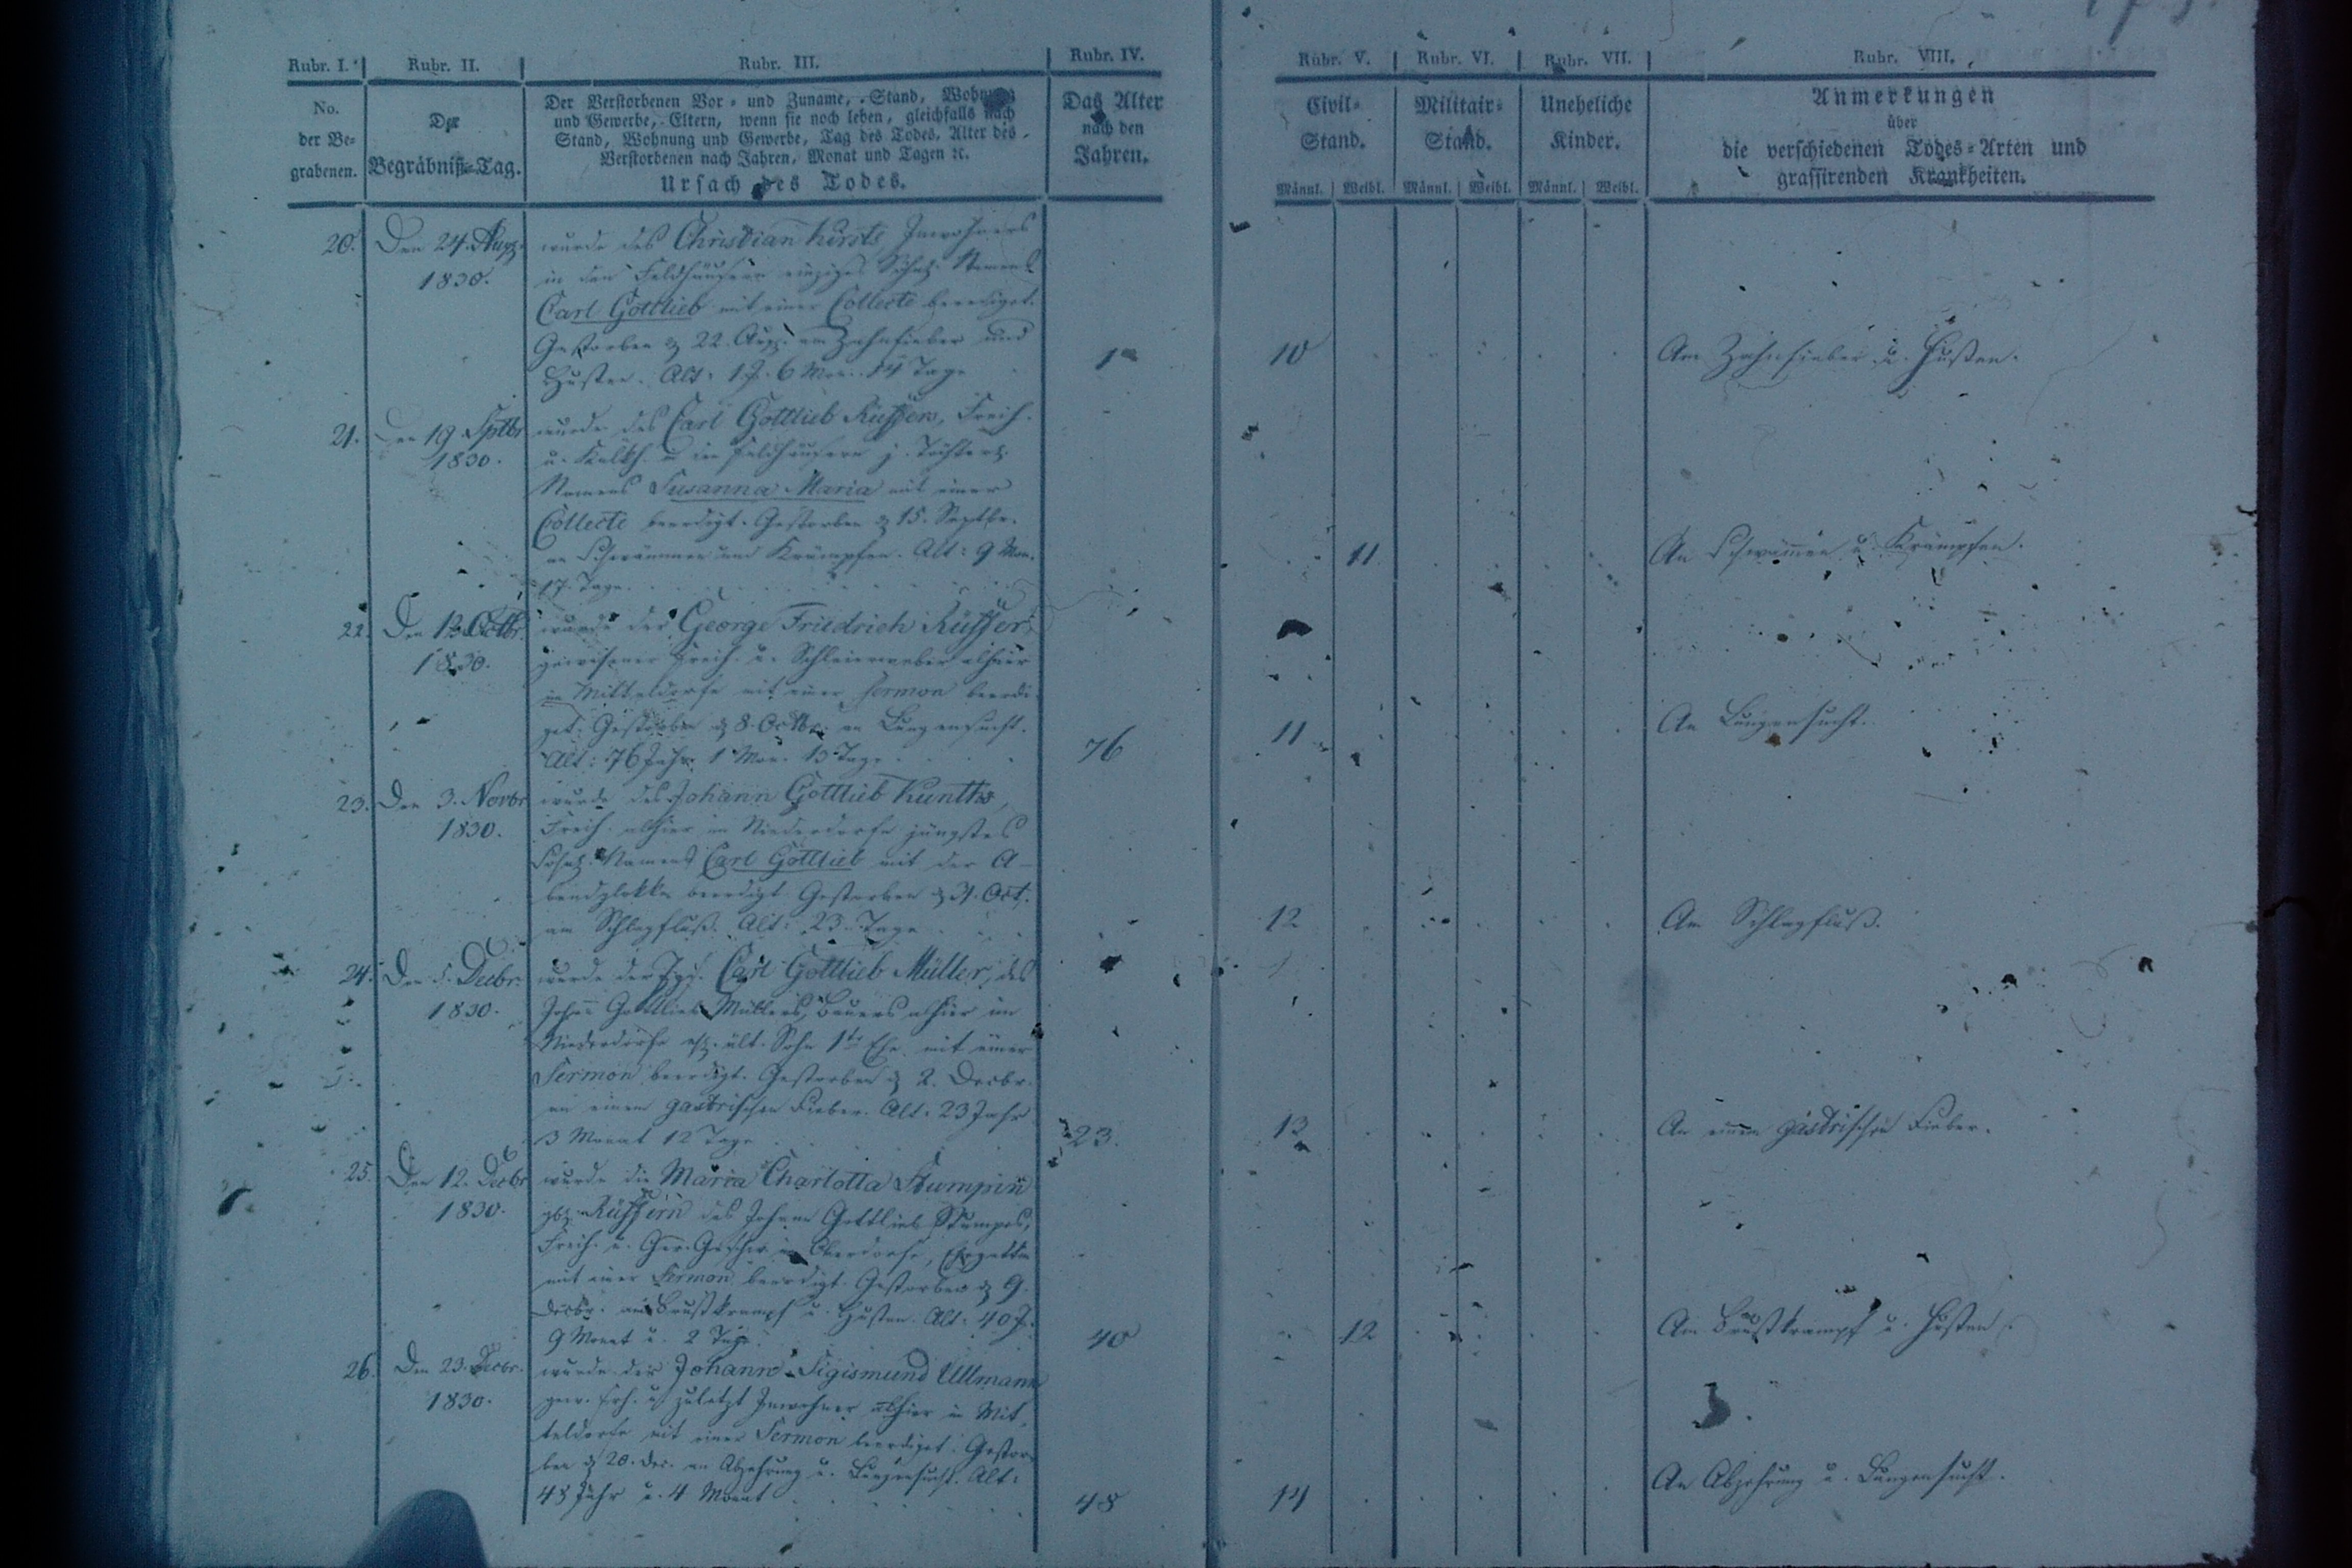 Rubr. I.
Rubr. II.
Rubr. III.
Rubr. IV.
Rubr. V.
Rubr. VI.
Rubr. VII.
Rubr. VIII.
No.
der Be-
grabenen.
Der
Begräbniß-Tag.
Der Verstorbenen Vor- und Zuname, Stand, Wohnung
und Gewerbe, Eltern, wenn sie noch leben, gleichfalls nach
Stand, Wohnung und Gewerbe, Tag des Todes, Alter des
Verstorbenen nach Jahren, Monat und Tagen ꝛc.
Ursach des Todes.
Das Alter
nach den
Jahren.
Civil-
Stand.
Militair-
Stand.
Uneheliche
Kinder.
Männl. Weibl. Männl. Weibl. Männl. Weibl.
Anmerkungen
über
die verschiedenen Todes-Arten und
grassirenden Krankheiten.
20. Den 24. Aug.
1830.
wurde des Christian Inwohners
in den Feldhäusern einziges Söhnl. Namens
Carl Gottlieb mit einer Collecte beerdiget.
Gestorben d. 22. Aug. am Zahnfieber und
Husten. Alt: 1 J. 6 Mon. 14 Tage
1
10
Am Zahnfieber u. Husten.
21. Den 19. Sptbr
1830.
wurde des Carl Gottlieb Rüffers, Freih.
u. in Feldhäusern j. Töchterl.
Namens Susanna Maria mit einer
Collecte beerdigt. Gestorben d. 15. Septbr.
an Schwämmen und Krämpfen. Alt: 9 Mon.
17. Tage.
11
An Schwämmen u. Krämpfen.
22. Den 12. Octbr.
1830.
wurde der George Friedrich Rüffer
gewesener Freih. u. Schleierweber alhier
im Mitteldorfe mit einer Sermon beerdi-
get. Gestorben d. 8. Octbr. an Lungensucht.
Alt: 76 Jahr 1 Mon. 13 Tage
76
11
An Lungensucht.
23. Den 3. Novbr
1830.
wurde des Johann Gottlieb Kunths,
Freih. alhier im Niederdorfe jüngstes
Söhnl. Namens Carl Gottlieb mit der A-
bendglokke beerdigt. Gestorben d. 31. Oct.
am Schlagfluß. Alt: 23 Tage
12
Am Schlagfluß.
24. Den 5. Decbr.
1830.
wurde der Igs. Carl Gottlieb Müller, des
Johann Gottlieb Müllers, Bauers alhier im
Niederdorfe ält. Sohn 1ter Ehe mit einer
Sermon beerdigt. Gestorben d. 2. Decbr.
an einem gastrischen Fieber. Alt: 23 Jahr
3 Monat 12 Tage
23.
13
An einem gastrischen Fieber.
25. Den 12. Decbr
1830.
wurde die Maria Charlotta Stumpin
geb. Rüfferin des Johann Gottlieb Stumpes,
Freih. u. Ger. Gesch. im Oberdorfe, Ehegattin
mit einer Sermon beerdigt. Gestorben d. 9.
Decbr. am Brustkrampf u. Husten. Alt: 40 J.
9 Monat u. 2 Tage.
40
12
Am Brustkrampf u. Husten.
26. Den 23. Decbr.
1830.
wurde der Johann Sigismund Ullmann
gew. Frh. u. zuletzt Inwohner alhier in Mit-
teldorfe mit einer Sermon beerdiget. Gestor-
ben d. 20. Dec. an Abzehrung u. Lungensucht. Alt:
48 Jahr u. 4 Monat
48
14
An Abzehrung u. Lungensucht.